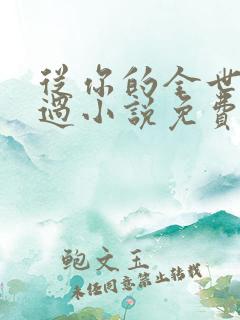 從你的全世
過小說免費
鲍文玉
未经同意禁止转载